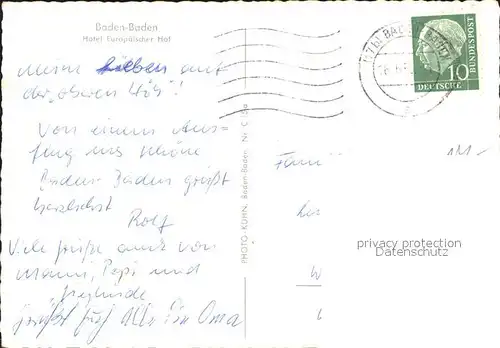 Baden-Baden
Hotel Europäischer Hof
Meinen lieben auf
der "oberen
Von einem Aus-
flug ins schöne
Baden-Baden grüßt
herzlichst
Rolf
Viele Grüße auch von
Mami, Papi und
Sieglinde
grüßt Euch Alle Oma
PHOTO-KUHN, Baden-Baden Nr.
BADEN-BADEN
10
DEUTSCHE
BUNDESPOST
1M-
Fam
privacy protection
Datenschutz